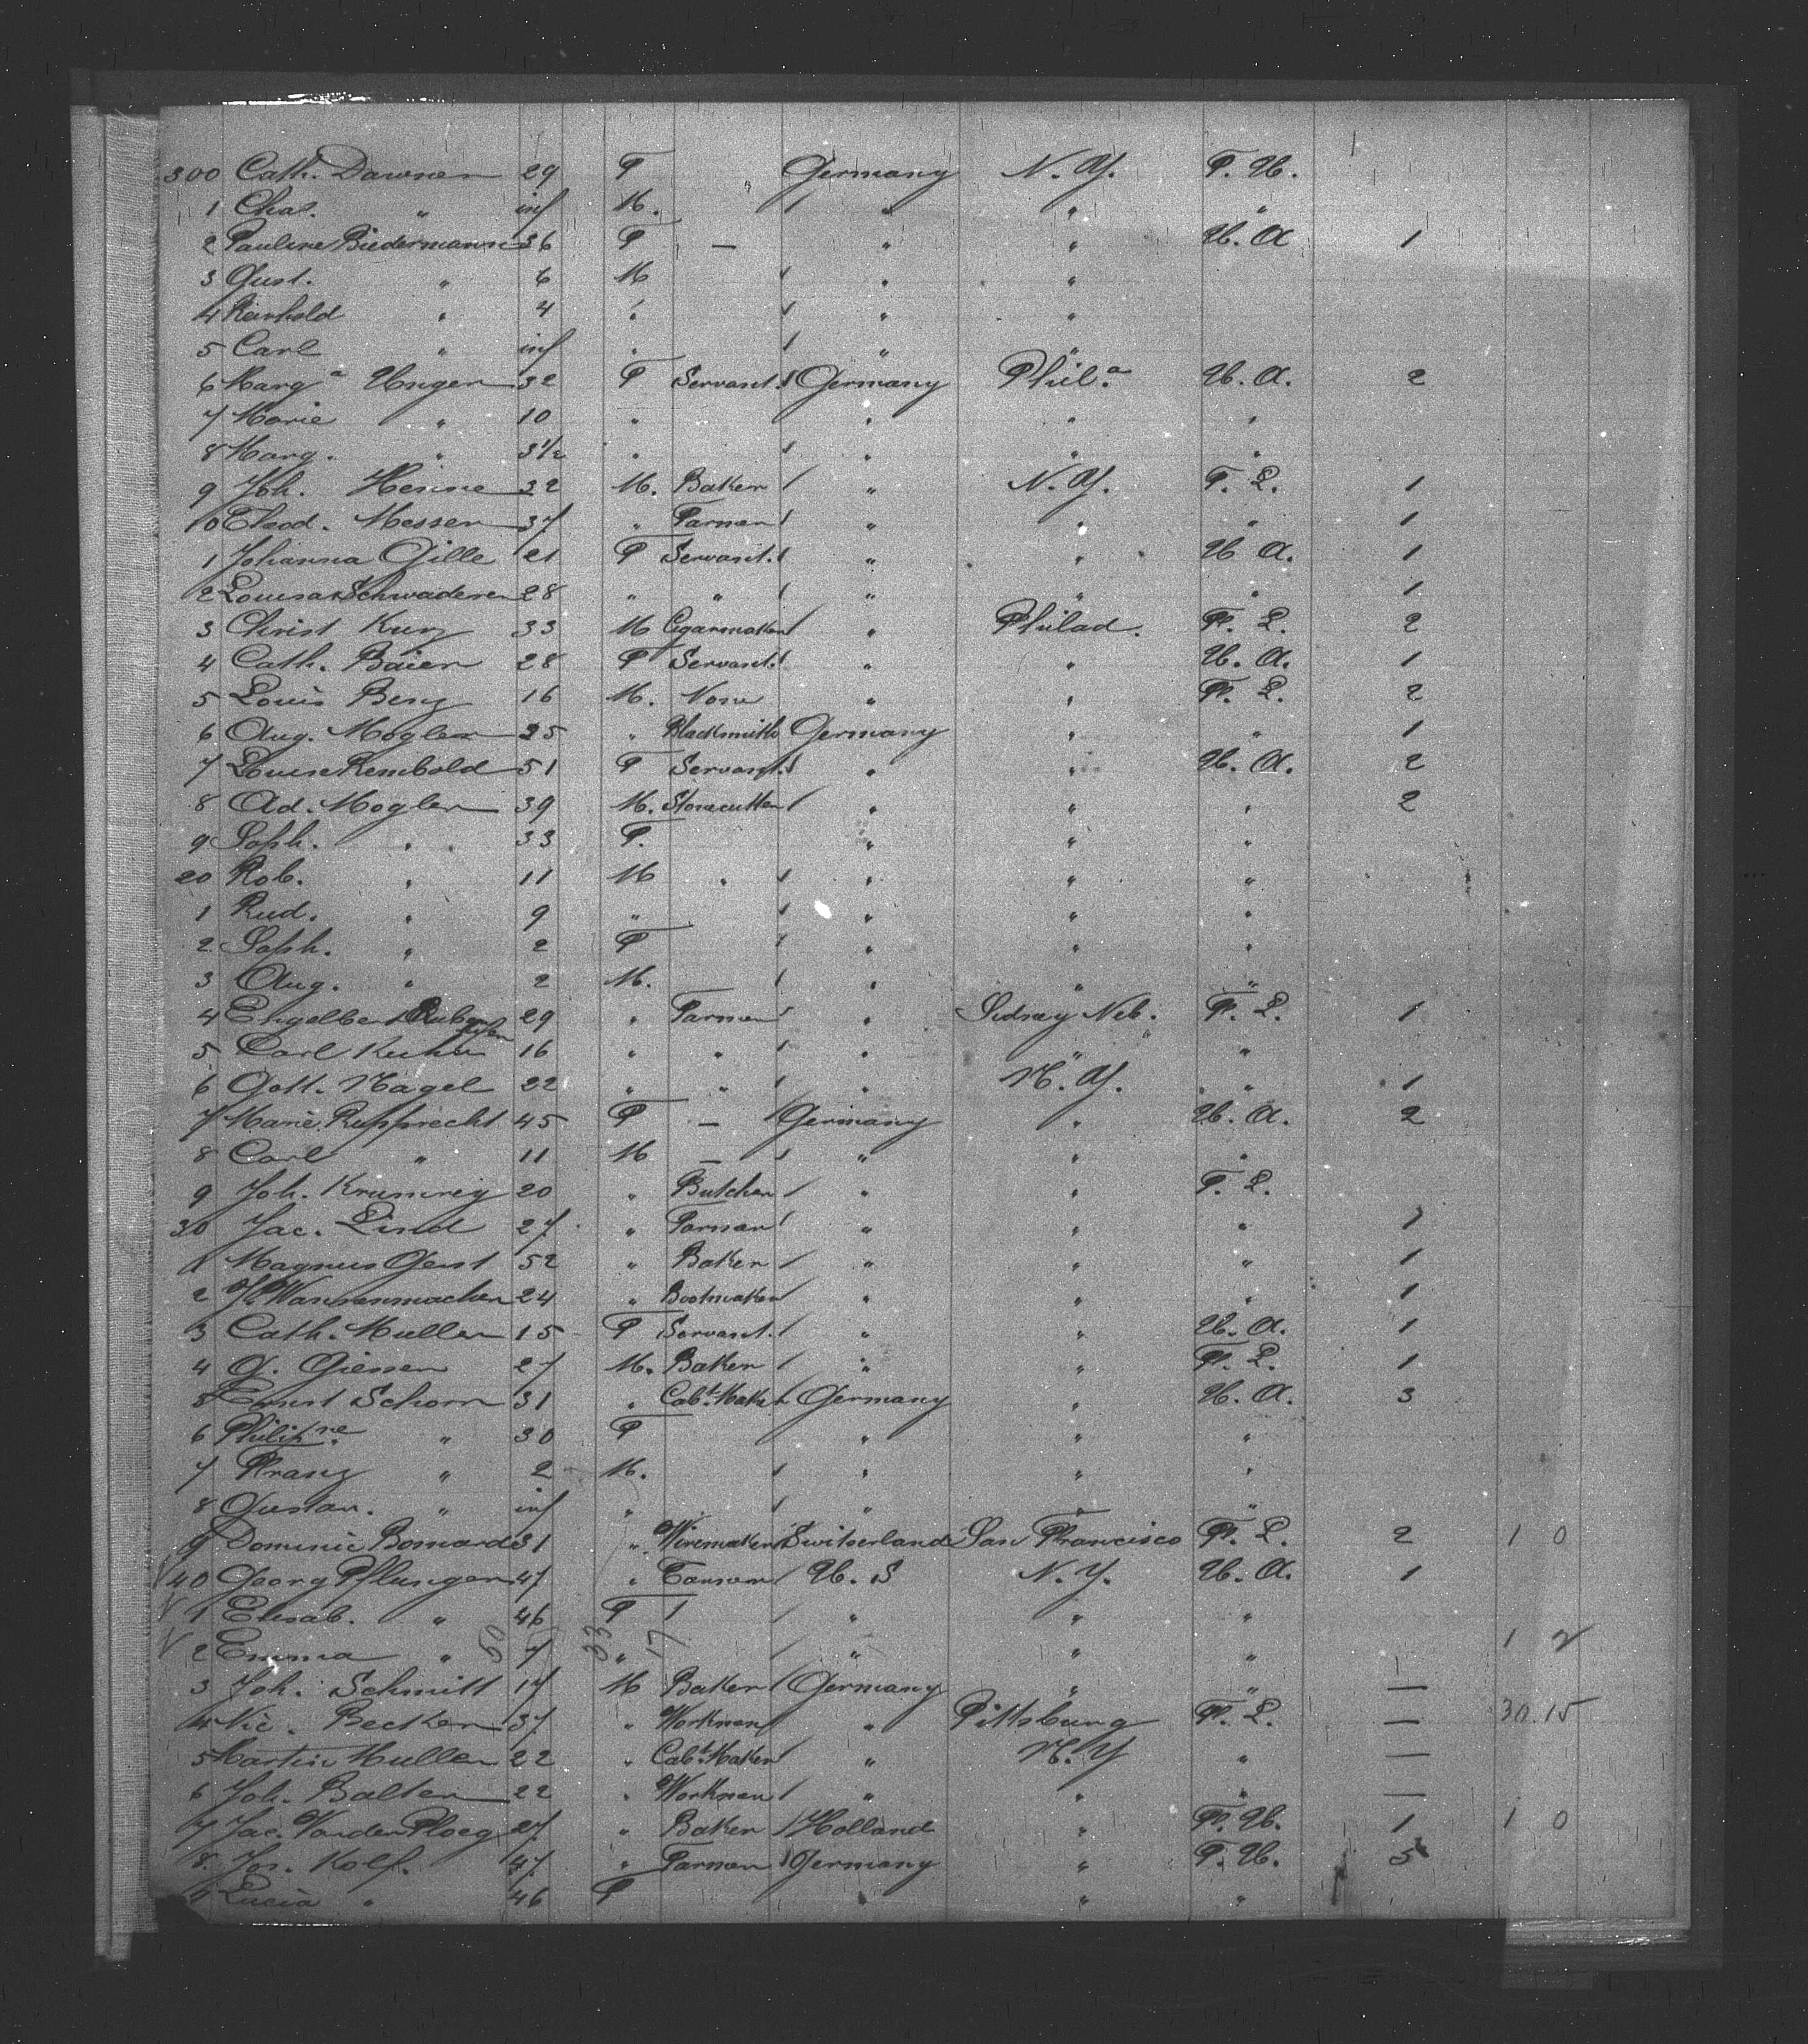 300 Cath. Dawner 29 F Germany N. Y. F. U.
1 Chas. " inf M. " " "
2 Pauline Biedermann 36 F — " " U. A 1
3 Gust. " 6 M " "
4 Reinhold " 4 " " "
5 Carl " inf " " "
6 Marga Unger 32 F Servant. Germany Phila U. A. 2
7 Marie " 10 " " " "
8 Marg. " 3 1/2 " " " "
9 Joh. Henne 32 M. Baker " N. Y. F. L. 1
10 Theod. Messer 37 " Farmer " " " 1
1 Johanna Gille 21 F Servant. " " U A. 1
2 Louisa Schwaderer 28 " " " " " 1
3 Christ Kurz 33 M Cigarmaker " Philad. F. L. 2
4 Cath. Baier 28 F Servant. " " U. A. 1
5 Louis Benz 16 M. None " " F. L. 2
6 Aug. Mogler 25 " Blacksmith Germany " " 1
7 Louise Rembold 51 F Servant. " " U. A. 2
8 Ad. Mogler 39 M. Stonecutter " " " 2
9 Soph. " 33 F. " " "
20 Rob. " 11 M " " " "
1 Rud. " 9 " " " "
2 Soph. " 2 F " " "
3 Aug. " 2 M. " " "
4 Engelbert 29 " Farmer " Sidney Neb. F. L. 1
5 Carl Kuhn 16 " " " " "
6 Gott. Nagel 22 " " " N. Y. " 1
7 Marie Rupprecht 45 F — Germany " U. A. 2
8 Carl " 11 M — " " "
9 Joh. Krumrey 20 " Butcher " " F. L.
30 Jac. Lind 27 " Farmer " " " 1
1 Magnus Gerst 52 " Baker " " " 1
2 Wannenmacher 24 " Bootmaker " " " 1
3 Cath. Muller 15 F Servant. " " U. A. 1
4 G. Giesser 27 M. Baker " " F. L. 1
5 Ernst Schorr 31 " Cabt. Maker Germany " U. A. 3
6 Philipne " 30 F " " "
7 Franz " 2 M. " " "
8 Gustav. " inf " " " "
9 Dominic Bomard 31 " Wiremaker Switserland San Francisco F. L. 2 1 0
40 Georg Pflunger 47 " Farmer U. S N. Y. U. A. 1
1 Elisab. " 46 F 1 " " "
2 Emma " 50 7 33 " 17 " " " 1 2
3 Joh. Schmitt 17 M Baker Germany " " —
4 Nic. Becker 37 " Workman " Pittsburg F. L. — 30.15
5 Martin Muller 22 " Cabt. Maker " N. Y " —
6 Joh. Balter 22 " Workman " " " —
7 Jac. Vander Ploeg 27 " Baker Holland " F. U. 1 1 0
8. Jos. Kolf. 47 " Farmer Germany " F. U. 5
9 Lucia " 46 F " " "